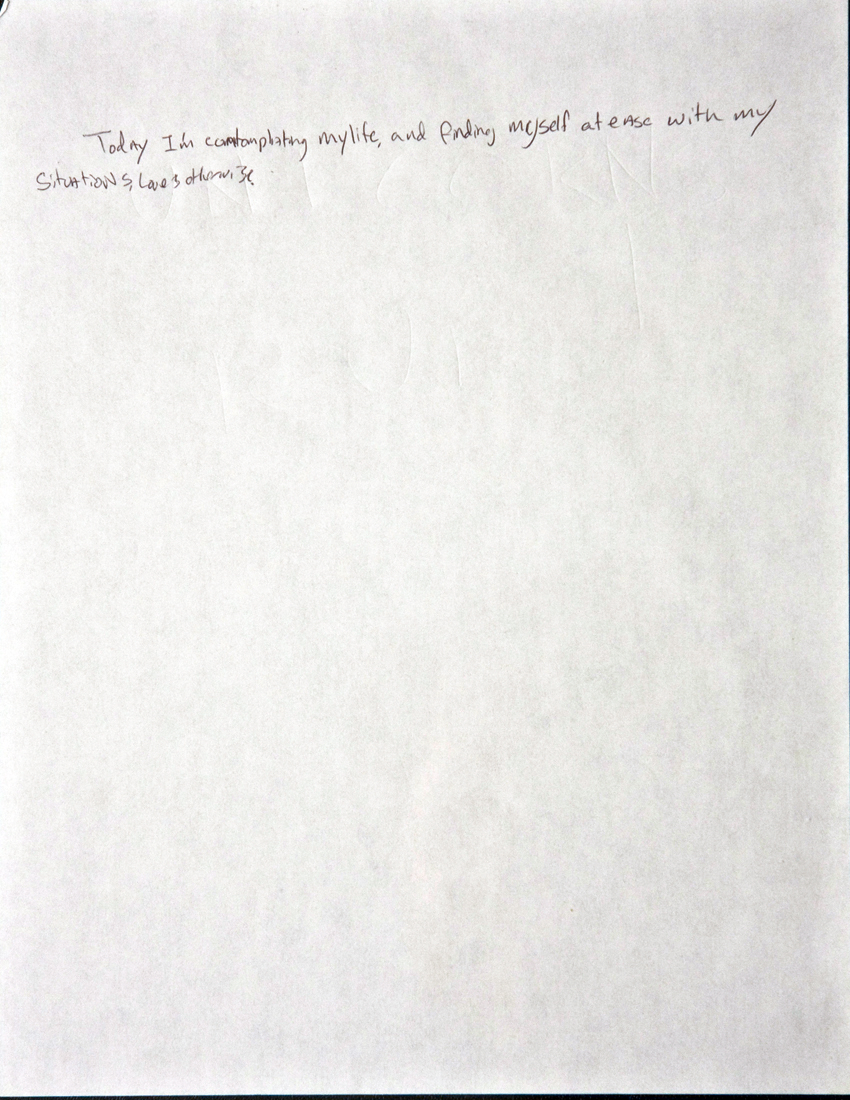 Today I'm contomplating my life, and finding myself at ease with my
situations, Love & otherwise.